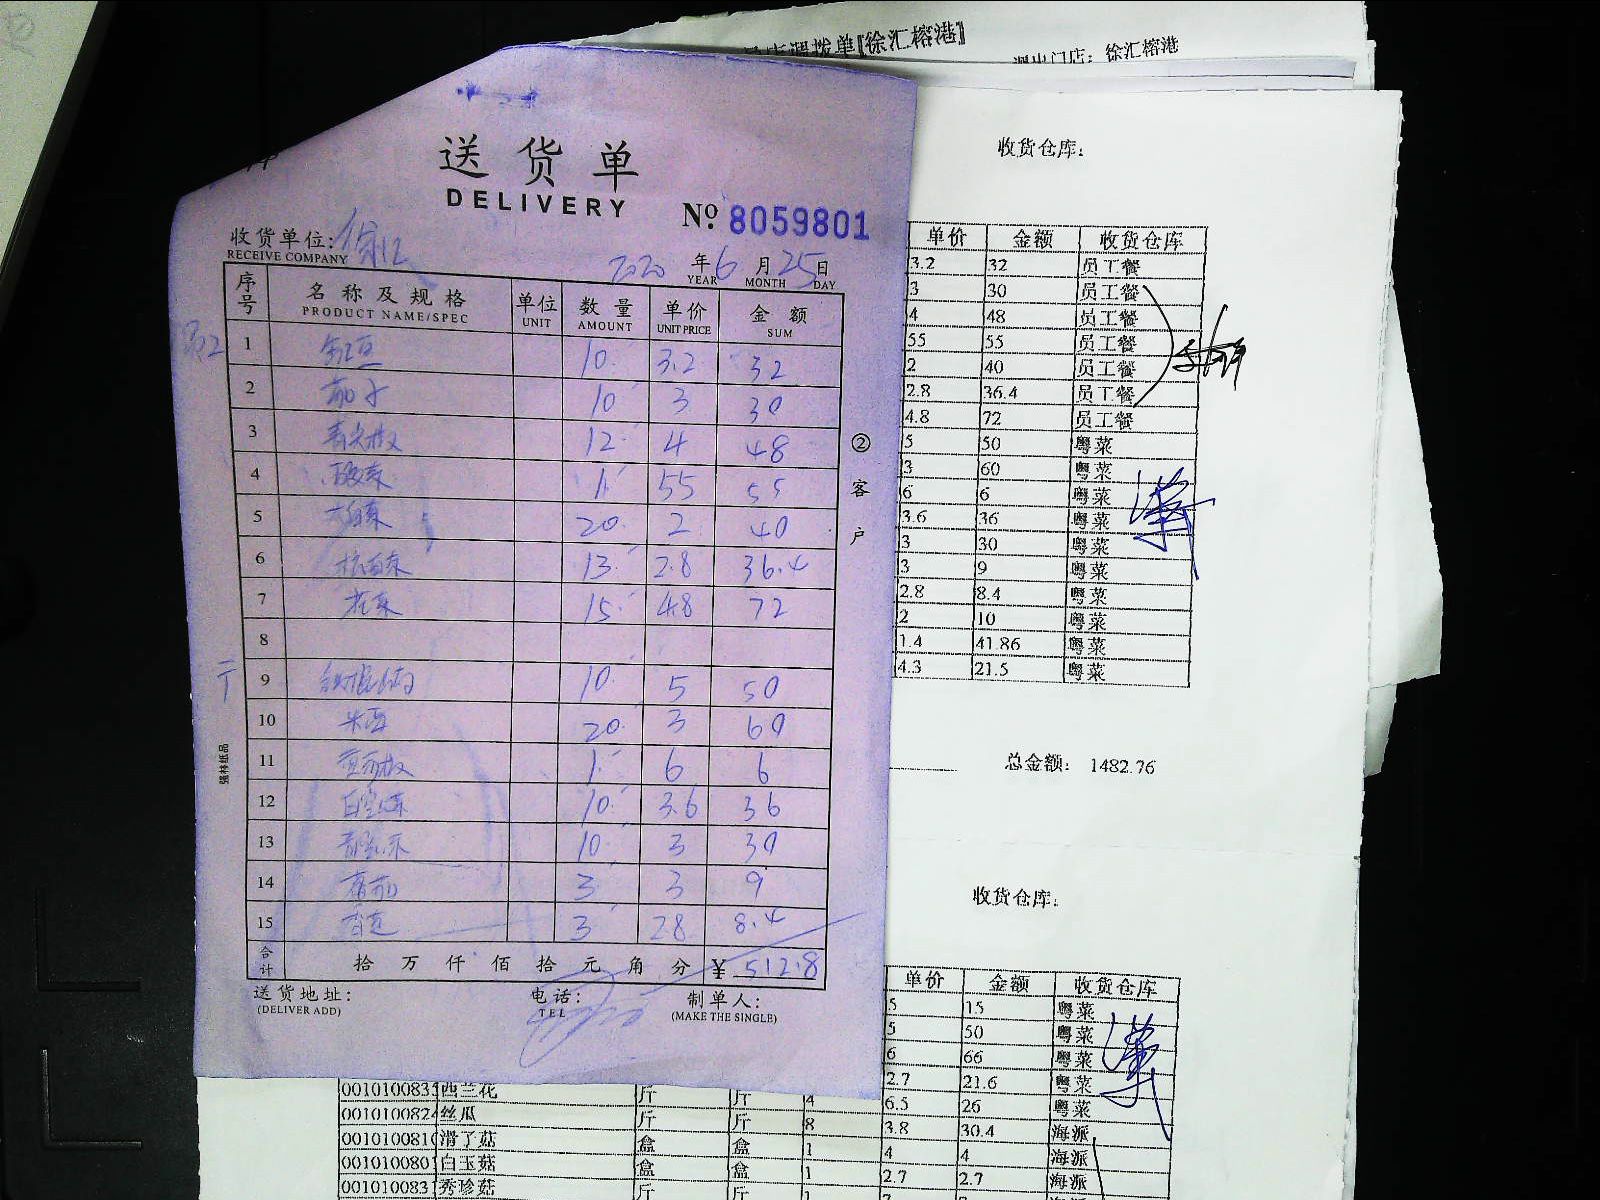 店调拨单[徐汇榕港]
调出门店：徐汇榕港
收货仓库：
单价 金额 收货仓库
3.2 32 员工餐
3 30 员工餐
4 48 员工餐
55 55 员工餐
2 40 员工餐
2.8 36.4 员工餐
4.8 72 员工餐
5 50 粤菜
3 60 粤菜
6 6 粤菜
3.6 36 粤菜
3 30 粤菜
3 9 粤菜
2.8 8.4 粤菜
2 10 粤菜
1.4 41.86 粤菜
4.3 21.5 粤菜
总金额： 1482.76
收货仓库：
单价 金额 收货仓库
5 15 粤菜
5 50 粤菜
6 66 粤菜
2.7 21.6 粤菜
6.5 26 粤菜
送货单
DELIVERY
№ 8059801
收货单位：徐汇
RECEIVE COMPANY
2020 年 6 月 25 日
YEAR MONTH DAY
序号 名称及规格 单位 数量 单价 金额
PRODUCT NAME/SPEC UNIT AMOUNT UNIT PRICE SUM
1 10 3.2 32
2 茄子 10 3 30
3 青尖椒 12 4 48
4 酸菜 1 55 55
5 大白菜 20 2 40
6 杭白菜 13 2.8 36.4
7 花菜 15 4.8 72
8
9 10 5 50
10 20 3 60
11 1 6 6
12 10 3.6 36
13 10 3 30
14 3 3 9
15 3 2.8 8.4
合计 拾 万 仟 佰 拾 元 角 分 ¥ 512.8
② 客户
强林纸品
送货地址： 电话： 制单人：
(DELIVER ADD) TEL (MAKE THE SINGLE)
001010083 西兰花 斤 斤 4
001010082 丝瓜 斤 斤 8 3.8 30.4 海派
001010081 滑子菇 盒 盒 1 4 4 海派
001010080 白玉菇 盒 盒 1 2.7 2.7 海派
001010083 秀珍菇 斤 斤 1